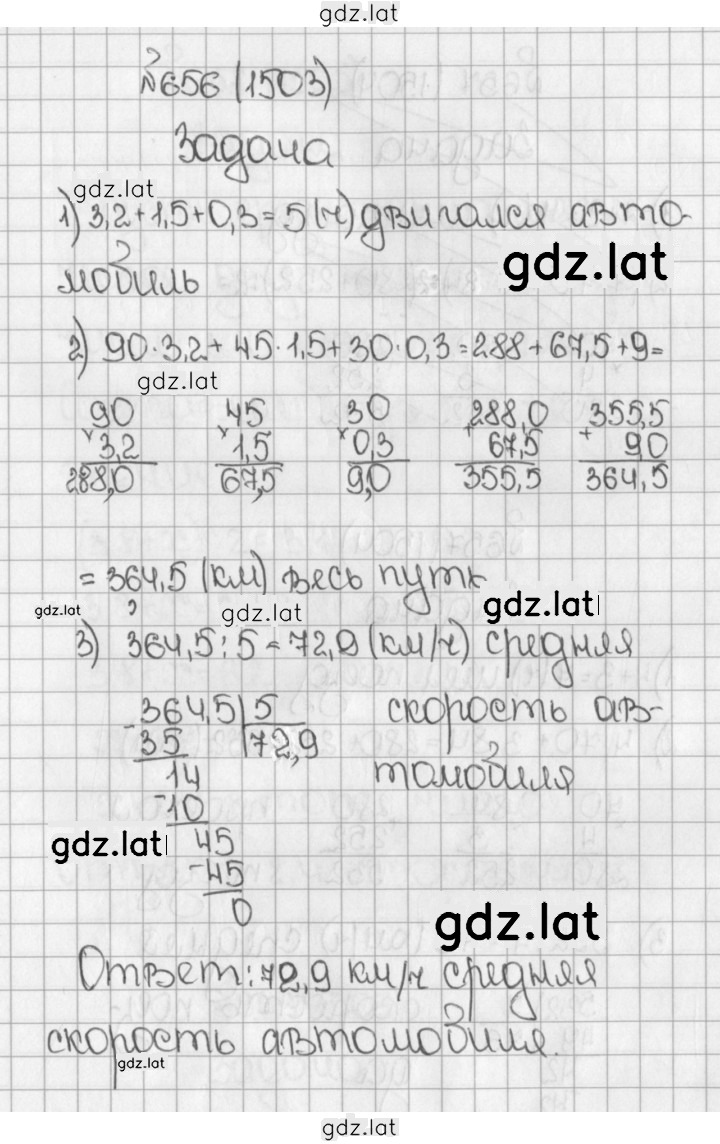 gdz.lat
№656 (1503)
Задача
gdz.lat
1) 3,2+1,5+0,3=5(ч) двигался авто-
gdz.lat
мобиль
2) 90·3,2+45·1,5+30·0,3=288+67,5+9=
gdz.lat
90 45 30 288,0 355,5
× 3,2 × 1,5 × 0,3 + 67,5 + 90
288,0 67,5 9,0 355,5 364,5
= 364,5 (км) весь путь
gdz.lat gdz.lat gdz.lat
3) 364,5:5=72,9 (км/ч) средняя
364,5 5 скорость ав-
- 35 72,9
14 томобиля
- 10
gdz.lat 45
- 45
0
gdz.lat
Ответ: 72,9 км/ч средняя
скорость автомобиля.
gdz.lat
gdz.lat